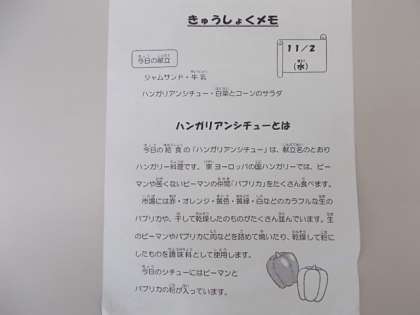 きゅうしょくメモ
11/2
(水)
今日の献立
ジャムサンド・牛乳
ハンガリアンシチュー・白菜とコーンのサラダ
ハンガリアンシチューとは
今日の給食の「ハンガリアンシチュー」は、献立名のとおり
ハンガリー料理です。東ヨーロッパの国ハンガリーでは、ピー
マンや苦くないピーマンの仲間「パプリカ」をたくさん食べます。
市場には赤・オレンジ・黄色・黄緑・白などのカラフルな生の
パプリカや、干して乾燥したのものがたくさん並んでいます。生
のピーマンやパプリカに肉などを詰めて焼いたり、乾燥して粉に
したものを調味料として使用します。
今日のシチューにはピーマンと
パプリカの粉が入っています。